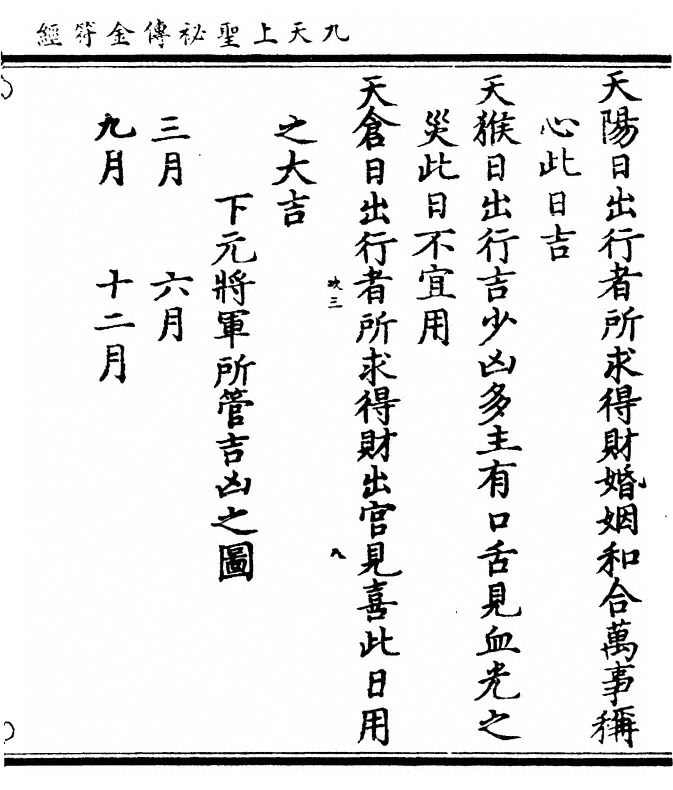 九天上聖祕傳金符經
天陽日出行者所求得財婚姻和合萬事稱
心此日吉
天猴日出行吉少凶多主有口舌見血光之
災此日不宜用
天倉日出行者所求得財出官見喜此日用
之大吉
下元將軍所管吉凶之圖
三月 六月
九月 十二月